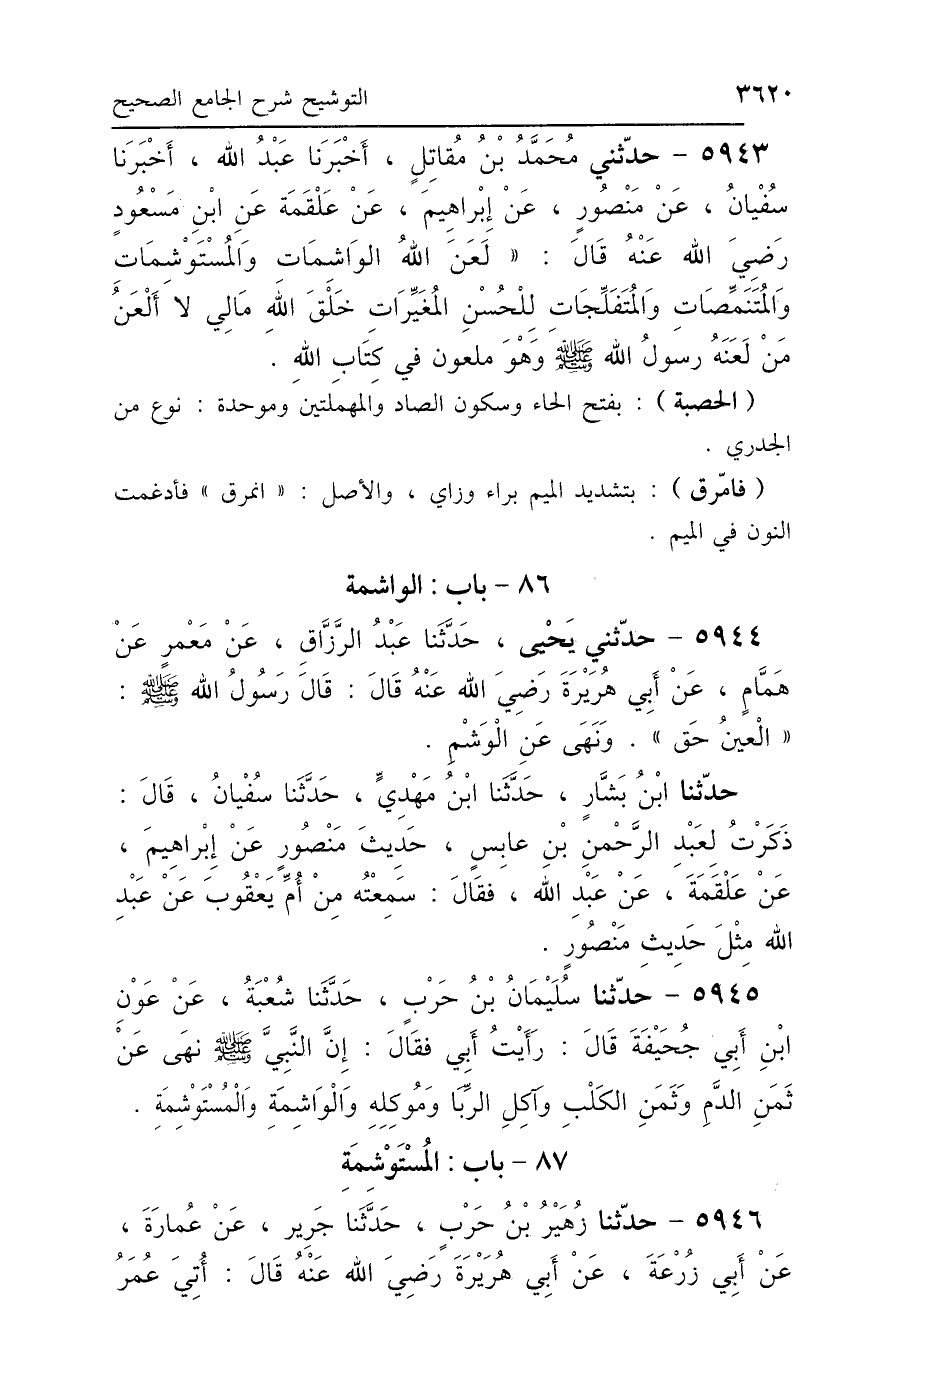 ٣٦٢٠ التوشيح شرح الجامع الصحيح
٥٩٤٣ – حدّثني مُحَمَّدُ بنُ مُقاتلٍ ، أَخْبَرَنا عَبْدُ الله ، أَخْبَرَنا
سُفْيانُ ، عَنْ مَنْصُورٍ ، عَنْ إِبْراهِيمَ ، عَنْ عَلْقَمَةَ عَنِ ابْنِ مَسْعُودٍ
رَضِيَ الله عَنْهُ قَالَ : « لَعَنَ اللهُ الوَاشِمَات وَالْمُسْتَوْشِمَات
وَالْمُتَنَمِّصَات وَالْمُتَفَلِّجَاتِ لِلْحُسْنِ الْمُغَيِّرَات خَلْقَ اللهِ مَالي لا أَلْعَنُ
مَنْ لَعَنَهُ رسولُ الله ﷺ وَهْوَ ملعون في كِتَابِ اللهِ .
( الحصبة ) : بفتح الحاء وسكون الصاد والمهملتين وموحدة : نوع من
الجدري .
( فامّرق ) : بتشديد الميم براء وزاي ، والأصل : « انمرق » فأدغمت
النون في الميم .
٨٦ – باب : الواشمة
٥٩٤٤ – حدّثني يَحْيى ، حَدَّثَنا عَبْدُ الرَّزَّاقِ ، عَنْ مَعْمرٍ عَنْ
هَمَّامٍ ، عَنْ أَبي هُرَيْرَةَ رَضِيَ الله عَنْهُ قَالَ : قَالَ رَسُولُ الله ﷺ :
« الْعينُ حَق » . وَنَهَى عَنِ الْوَشْمِ .
حدّثنا ابْنُ بَشَّارٍ ، حَدَّثَنا ابْنُ مَهْدِيٍّ ، حَدَّثَنا سفْيانُ ، قَالَ :
ذَكَرْتُ لِعَبْدِ الرَّحْمنِ بْنِ عابسٍ ، حَدِيثَ مَنْصُورٍ عَنْ إِبْراهِيمَ ،
عَنْ عَلْقَمَةَ ، عَنْ عَبْدِ الله ، فقَالَ : سمَعِتْه مِنْ أُمِّ يَعْقُوبَ عَنْ عَبْدِ
الله مِثْلَ حَدِيثِ مَنْصُورٍ .
٥٩٤٥ – حدّثنا سُلَيْمَانُ بْنُ حَرْبٍ ، حَدَّثَنا شُعْبَةُ ، عَنْ عَوْنِ
ابْنِ أَبي جُحَيْفَةَ قَالَ : رَأَيْتُ أَبي فقَالَ : إِنَّ النَّبِيَّ ﷺ نهَى عَنْ
ثَمَنِ الدَّمِ وَثَمَنِ الكَلْبِ وآكِلِ الرِّبَا وَمُوكِلِهِ وَالْوَاشِمَةِ وَالْمُسْتَوْشِمَةِ .
٨٧ – باب : الْمُسْتَوْشِمَةِ
٥٩٤٦ – حدّثنا زُهَيْرُ بْنُ حَرْبٍ ، حَدَّثَنا جَرِير ، عَنْ عُمارَةَ ،
عَنْ أَبِي زُرْعَةَ ، عَنْ أَبِي هُرَيْرَةَ رَضِيَ الله عَنْهُ قَالَ : أُتِيَ عُمَرُ